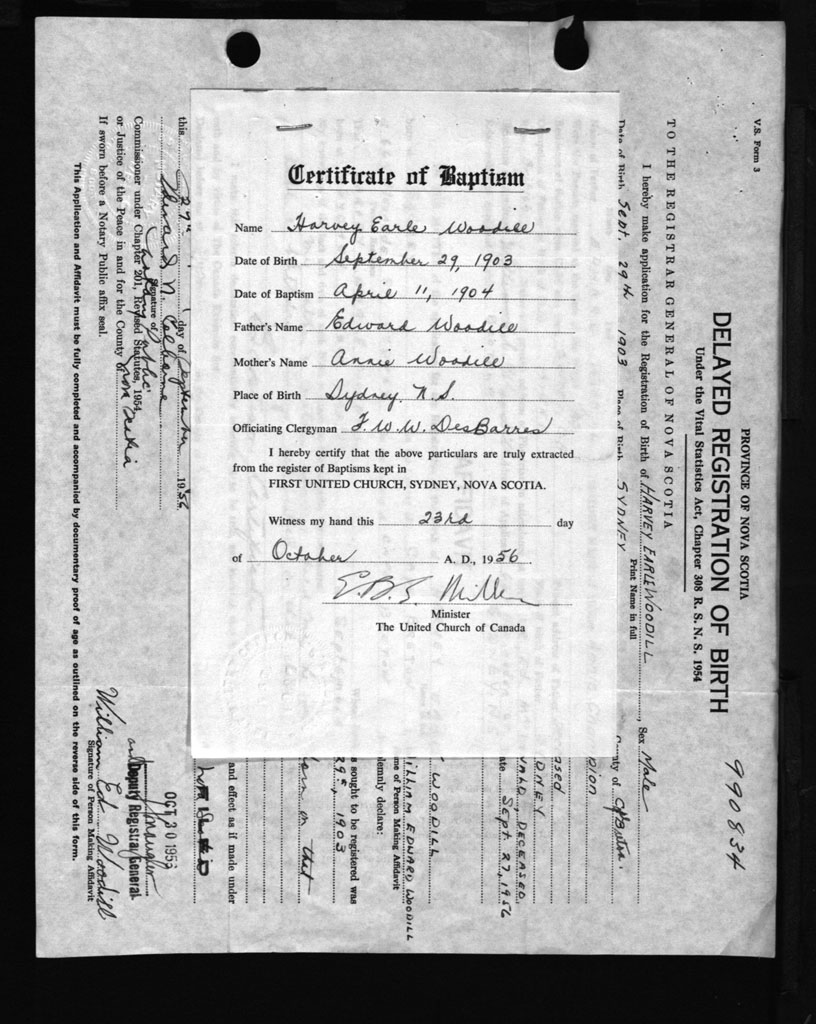 Certificate of Baptism
Name Harvey Earle Woodill
Date of Birth September 29, 1903
Date of Baptism April 11, 1904
Father's Name Edward Woodill
Mother's Name Annie Woodill
Place of Birth Sydney N.S.
Officiating Clergyman F. W. W. DesBarres
I hereby certify that the above particulars are truly extracted
from the register of Baptisms kept in
FIRST UNITED CHURCH, SYDNEY, NOVA SCOTIA.
Witness my hand this 23rd day
of October A. D., 1956
Minister
The United Church of Canada
V.S. Form 3
PROVINCE OF NOVA SCOTIA
DELAYED REGISTRATION OF BIRTH
Under the Vital Statistics Act, Chapter 308 R. S. N. S. 1954
990834
TO THE REGISTRAR GENERAL OF NOVA SCOTIA
I hereby make application for the Registration of Birth of HARVEY EARLE WOODILL, Sex Male
Print Name in full
Date of Birth Sept. 29th 1903 Place of Birth SYDNEY
DECEASED
Sept 27, 1956
WOODILL
WILLIAM EDWARD WOODILL
me of Person Making Affidavit
lemnly declare:
s sought to be registered was
29th, 1903
born on that
and effect as if made under
this 27th day of September 1956
Signature of
Commissioner under Chapter 201, Revised Statutes, 1954
or Justice of the Peace in and for the County Nova Scotia
If sworn before a Notary Public affix seal.
Deputy Registrar General
William Ed. Woodill
Signature of Person Making Affidavit
This Application and Affidavit must be fully completed and accompanied by documentary proof of age as outlined on the reverse side of this form.